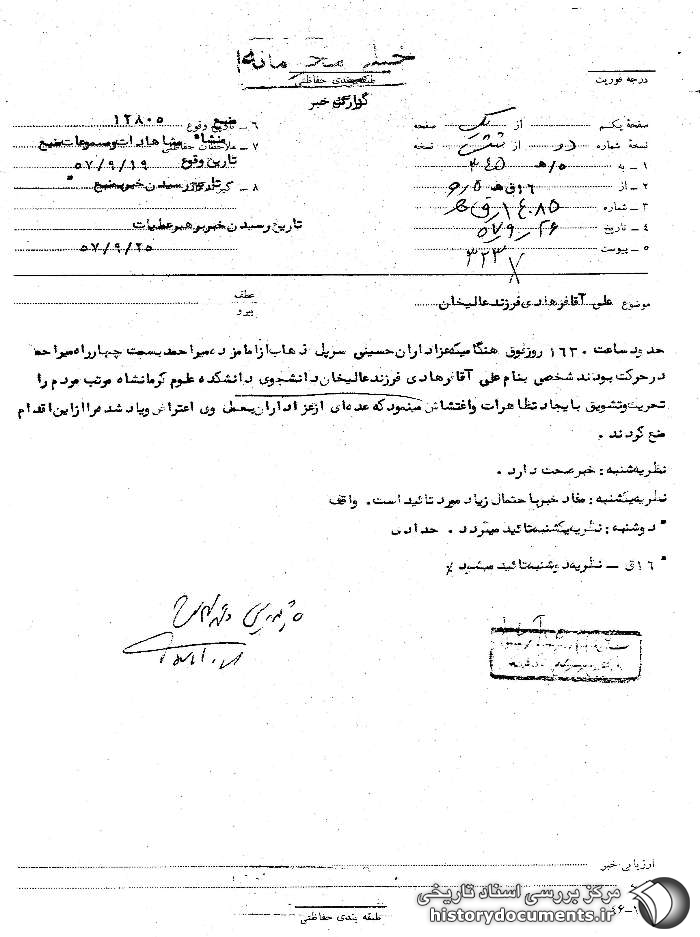 خیلی محرمانه
طبقه‌بندی حفاظتی
درجه فوریت
گزارش خبر
صفحهٔ یکم از یک صفحه
نسخهٔ شماره دو از شش نسخه
۱ – به ۵/هـ ۳۴۵
۲ – از ۱۶ق هـ
۳ – شماره
۴ – تاریخ ۵۷/۹/۲۶
۵ – پیوست
۶ – تاریخ وقوع
منبع ۱۲۸۰۵
۷ – ملاحظات حفاظتی
منشاء مشاهدات و مسموعات منبع
تاریخ وقوع ۵۷/۹/۱۹
۸ –
تاریخ رسیدن خبر بمنبع
تاریخ رسیدن خبر برهبر عملیات
۵۷/۹/۲۵
موضوع علی آقا فرهادی فرزند عالیخان
عطف
پیرو
حدود ساعت ۱۶۳۰ روز فوق هنگامیکه عزاداران حسینی سرپل ذهاب از امامزاده میراحمد بسمت چهارراه میراحمد
در حرکت بودند شخصی بنام علی آقا فرهادی فرزند عالیخان دانشجوی دانشکده علوم کرمانشاه مرتب مردم را
تحریک و تشویق با یجاد تظاهرات و اغتشاش مینمود که عده‌ای از عزاداران بعمل وی اعتراض و یاد شده را از این اقدام
منع کردند .
نظریه شنبه : خبر صحت دارد .
نظریه یکشنبه : مفاد خبر با حتمال زیاد مورد تائید است. واقف
دوشنبه : نظریه یکشنبه تائید میگردد . حدادی
۱۶ق – نظریه دوشنبه تائید میشود
ارزیابی خبر
طبقه بندی حفاظتی
مرکز بررسی اسناد تاریخی
historydocuments.ir